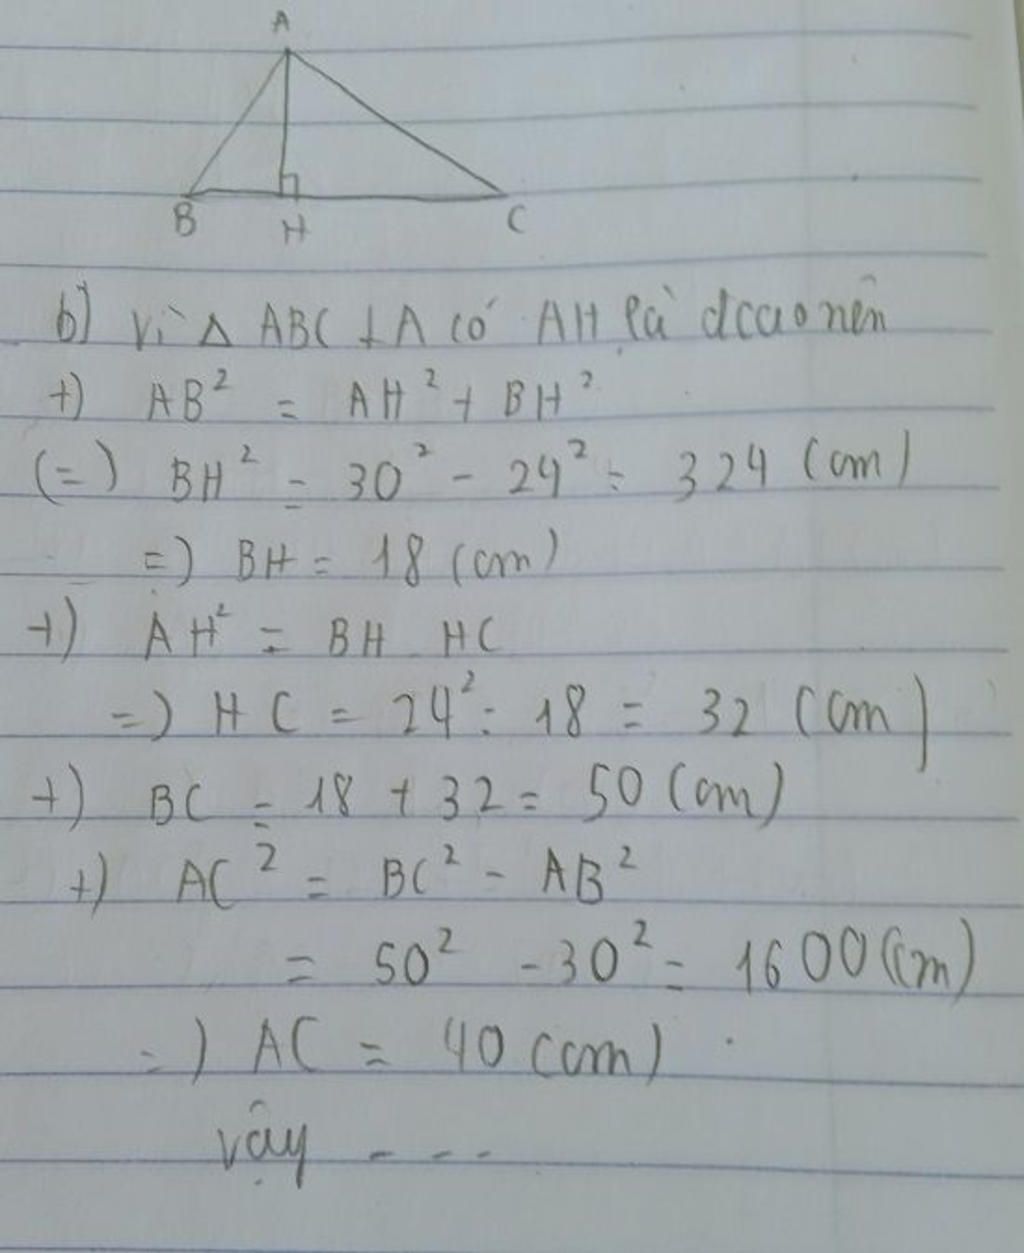 A
B H C
b) Vì Δ ABC ⊥ A có AH là đcao nên
+) AB² = AH² + BH²
(=) BH² = 30² - 24² = 324 (cm)
=) BH = 18 (cm)
+) AH² = BH . HC
=) HC = 24² : 18 = 32 (cm)
+) BC = 18 + 32 = 50 (cm)
+) AC² = BC² - AB²
= 50² - 30² = 1600 (cm)
=) AC = 40 (cm)
vậy - - -